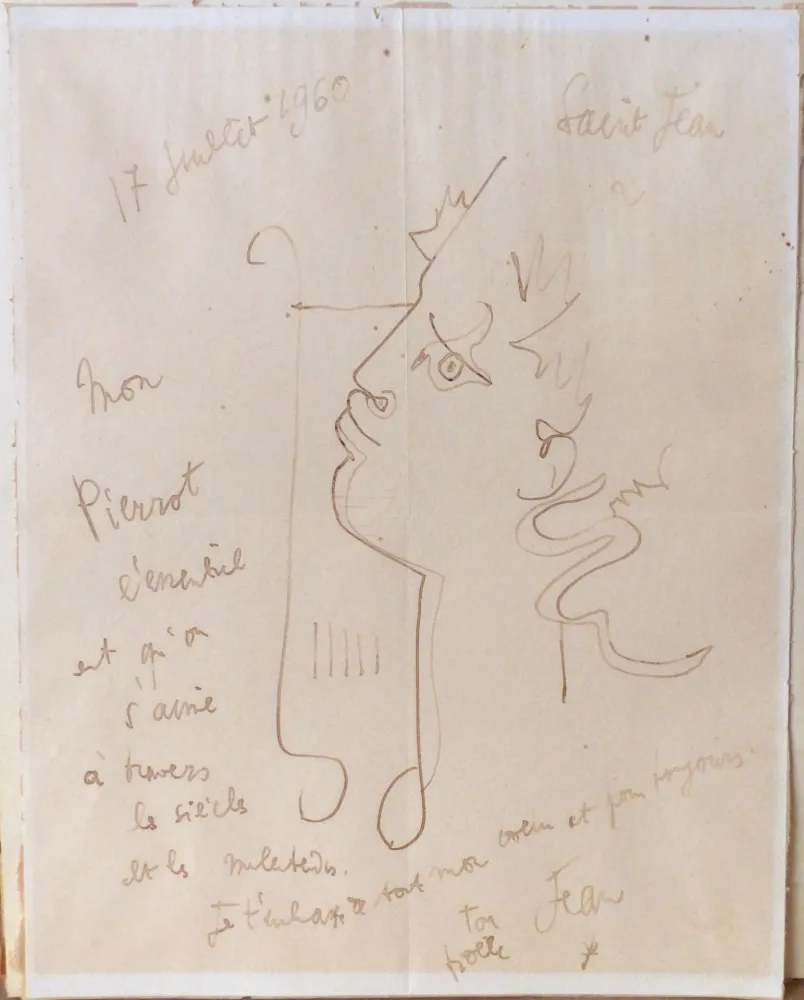 17 Juillet 1960
Saint Jean
Mon
Pierrot
l'essentiel
est qu'on
s'aime
à travers
les siècles
et les
Je t'embrasse de tout mon coeur et pour toujours.
Ton Jean
poète